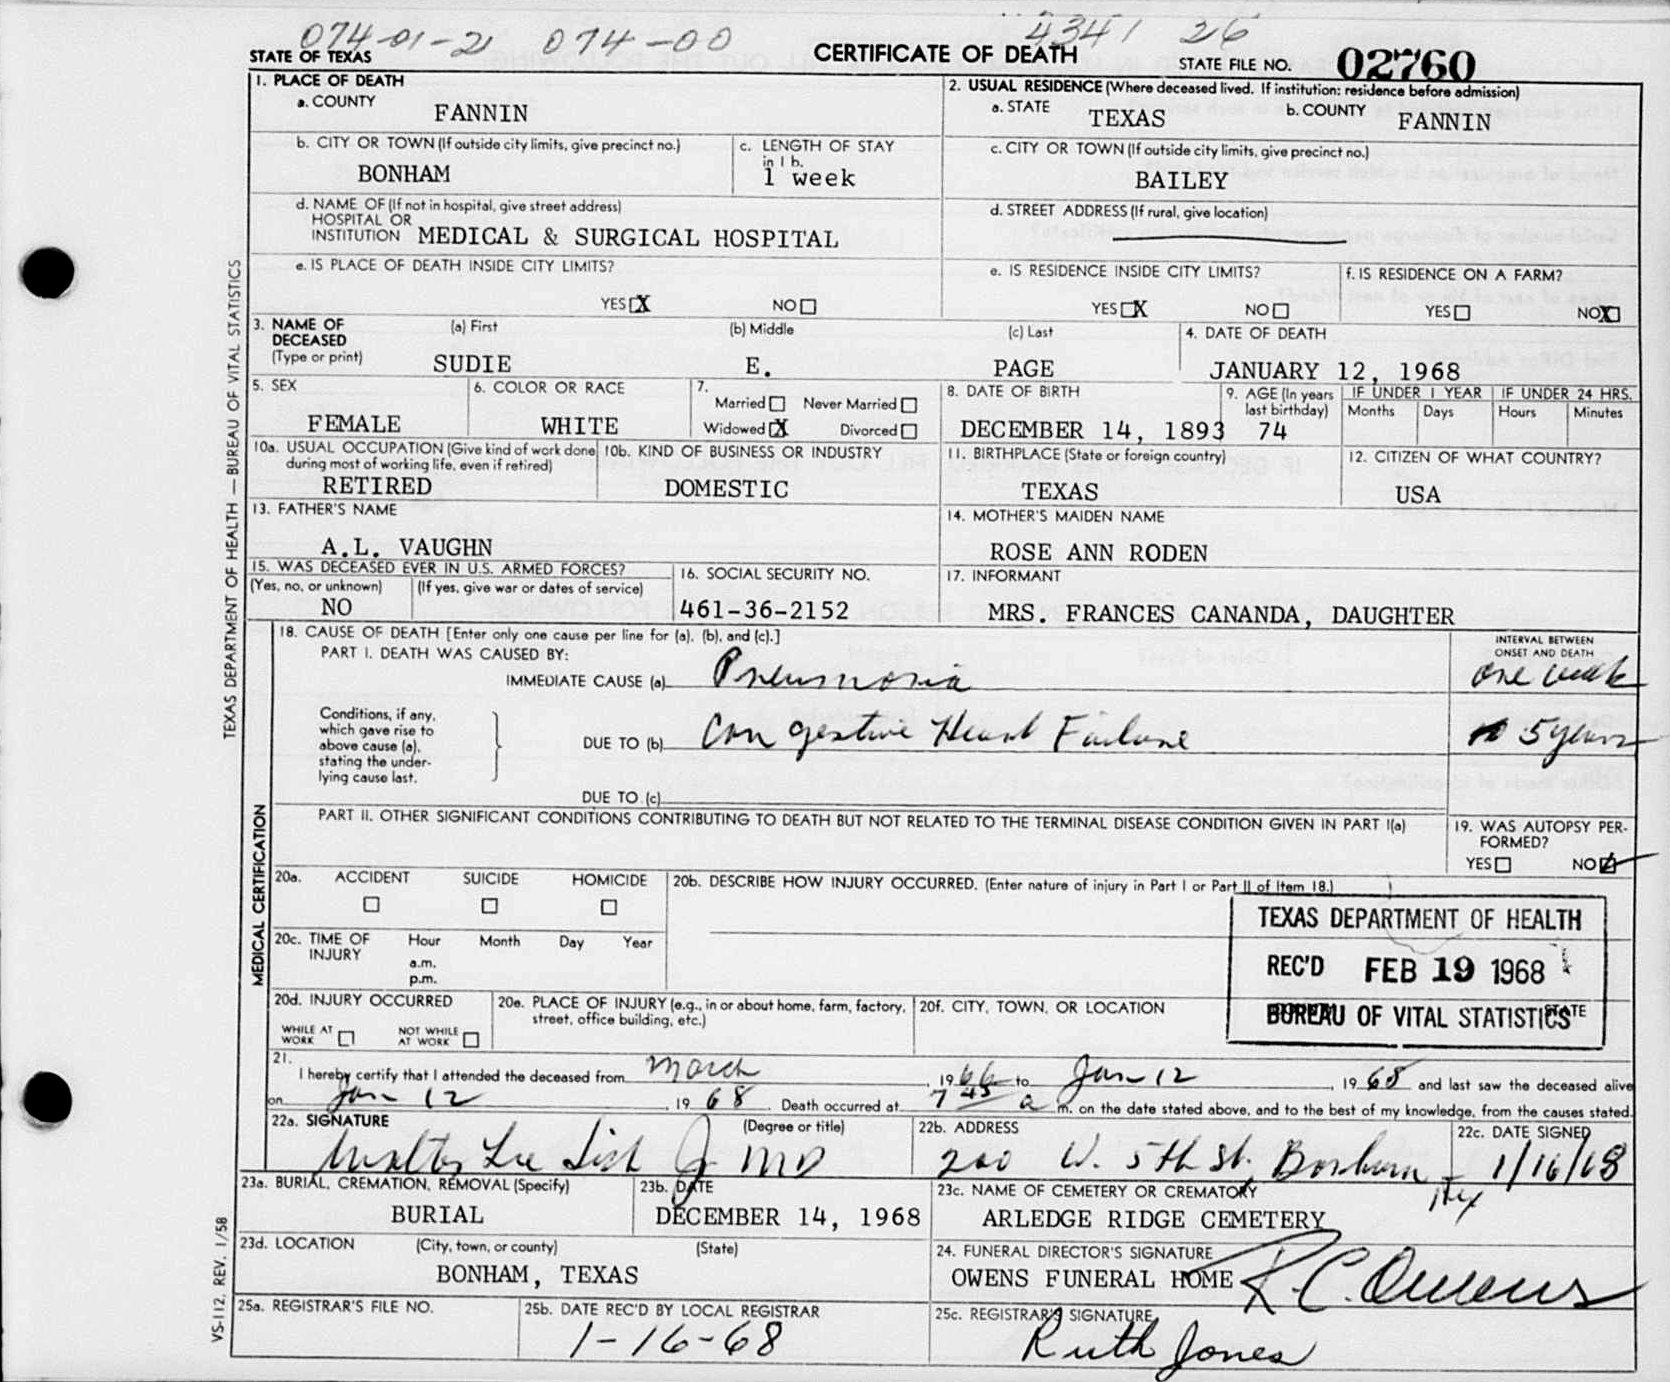 074-01-21 074-00 4341 26
STATE OF TEXAS CERTIFICATE OF DEATH STATE FILE NO. 02760
1. PLACE OF DEATH
a. COUNTY
FANNIN
2. USUAL RESIDENCE (Where deceased lived. If institution: residence before admission)
a. STATE TEXAS b. COUNTY FANNIN
b. CITY OR TOWN (If outside city limits, give precinct no.)
BONHAM
c. LENGTH OF STAY
in 1 b.
1 week
c. CITY OR TOWN (If outside city limits, give precinct no.)
BAILEY
d. NAME OF (If not in hospital, give street address)
HOSPITAL OR
INSTITUTION MEDICAL & SURGICAL HOSPITAL
d. STREET ADDRESS (If rural, give location)
e. IS PLACE OF DEATH INSIDE CITY LIMITS?
YES X NO
e. IS RESIDENCE INSIDE CITY LIMITS?
YES X NO
f. IS RESIDENCE ON A FARM?
YES NO X
3. NAME OF
DECEASED
(Type or print)
(a) First (b) Middle (c) Last
SUDIE E. PAGE
4. DATE OF DEATH
JANUARY 12, 1968
5. SEX
FEMALE
6. COLOR OR RACE
WHITE
7.
Married Never Married
Widowed X Divorced
8. DATE OF BIRTH
DECEMBER 14, 1893
9. AGE (In years
last birthday)
74
IF UNDER 1 YEAR IF UNDER 24 HRS.
Months Days Hours Minutes
10a. USUAL OCCUPATION (Give kind of work done
during most of working life, even if retired)
RETIRED
10b. KIND OF BUSINESS OR INDUSTRY
DOMESTIC
11. BIRTHPLACE (State or foreign country)
TEXAS
12. CITIZEN OF WHAT COUNTRY?
USA
13. FATHER'S NAME
A.L. VAUGHN
14. MOTHER'S MAIDEN NAME
ROSE ANN RODEN
15. WAS DECEASED EVER IN U.S. ARMED FORCES?
(Yes, no, or unknown) (If yes, give war or dates of service)
NO
16. SOCIAL SECURITY NO.
461-36-2152
17. INFORMANT
MRS. FRANCES CANANDA, DAUGHTER
18. CAUSE OF DEATH [Enter only one cause per line for (a), (b), and (c).]
PART I. DEATH WAS CAUSED BY:
INTERVAL BETWEEN
ONSET AND DEATH
IMMEDIATE CAUSE (a) Pneumonia one week
Conditions, if any,
which gave rise to
above cause (a),
stating the under-
lying cause last.
DUE TO (b) Congestive Heart Failure 5 years
DUE TO (c)
PART II. OTHER SIGNIFICANT CONDITIONS CONTRIBUTING TO DEATH BUT NOT RELATED TO THE TERMINAL DISEASE CONDITION GIVEN IN PART I(a)
19. WAS AUTOPSY PER-
FORMED?
YES NO
20a. ACCIDENT SUICIDE HOMICIDE
20b. DESCRIBE HOW INJURY OCCURRED. (Enter nature of injury in Part I or Part II of Item 18.)
20c. TIME OF
INJURY
Hour Month Day Year
a.m.
p.m.
TEXAS DEPARTMENT OF HEALTH
REC'D FEB 19 1968
BUREAU OF VITAL STATISTICS
20d. INJURY OCCURRED
WHILE AT
WORK
NOT WHILE
AT WORK
20e. PLACE OF INJURY (e.g., in or about home, farm, factory,
street, office building, etc.)
20f. CITY, TOWN, OR LOCATION
STATE
21.
I hereby certify that I attended the deceased from March, 1966 to Jan 12, 1968 and last saw the deceased alive
on Jan 12, 1968. Death occurred at 7 45 a m. on the date stated above, and to the best of my knowledge, from the causes stated.
22a. SIGNATURE (Degree or title)
Walter Lee Jr MD
22b. ADDRESS
200 W. 5th St. Bonham Tex
22c. DATE SIGNED
1/16/68
23a. BURIAL, CREMATION, REMOVAL (Specify)
BURIAL
23b. DATE
DECEMBER 14, 1968
23c. NAME OF CEMETERY OR CREMATORY
ARLEDGE RIDGE CEMETERY
23d. LOCATION (City, town, or county) (State)
BONHAM, TEXAS
24. FUNERAL DIRECTOR'S SIGNATURE
OWENS FUNERAL HOME R.C. Owens
25a. REGISTRAR'S FILE NO.
25b. DATE REC'D BY LOCAL REGISTRAR
1-16-68
25c. REGISTRAR'S SIGNATURE
Ruth Jones
TEXAS DEPARTMENT OF HEALTH — BUREAU OF VITAL STATISTICS
MEDICAL CERTIFICATION
VS-112, REV. 1/58